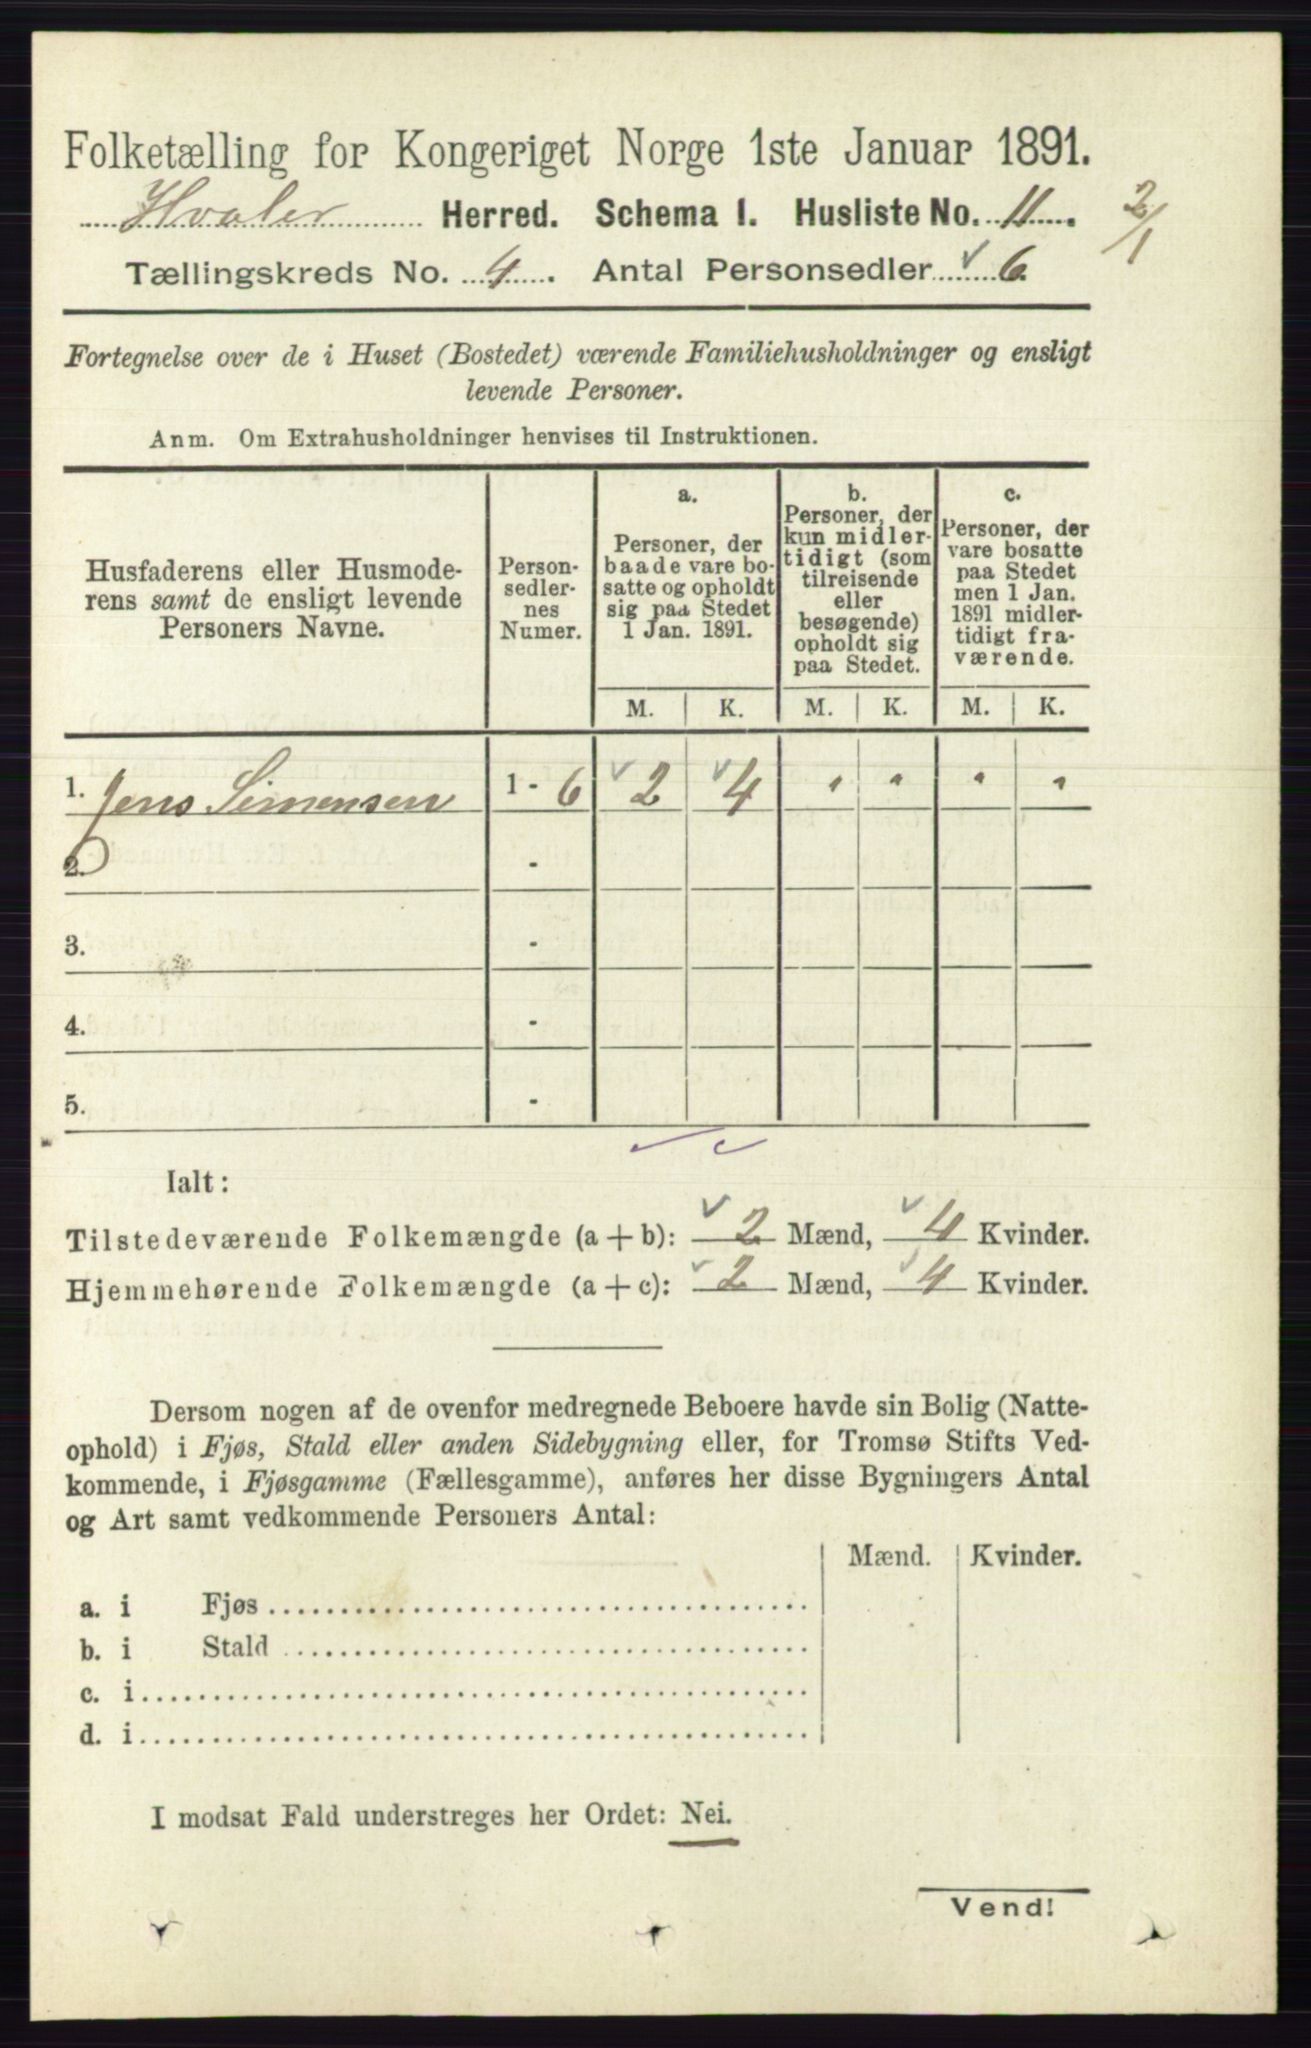 Folketælling for Kongeriget Norge 1ste Januar 1891.
Hvaler Herred. Schema I. Husliste No. 11. 2/1
Tællingskreds No. 4. Antal Personsedler 6
Fortegnelse over de i Huset (Bostedet) værende Familiehusholdninger og ensligt
levende Personer.
Anm. Om Extrahusholdninger henvises til Instruktionen.
Husfaderens eller Husmode-
rens samt de ensligt levende
Personers Navne.
Person-
sedler-
nes
Numer.
a.
Personer, der
baade vare bo-
satte og opholdt
sig paa Stedet
1 Jan. 1891.
b.
Personer, der
kun midler-
tidigt (som
tilreisende
eller
besøgende)
opholdt sig
paa Stedet.
c.
Personer, der
vare bosatte
paa Stedet
men 1 Jan.
1891 midler-
tidigt fra-
værende.
M. K. M. K. M. K.
1. Jens Simensen 1 - 6 2 4 " " " "
2. -
3. -
4. -
5. -
Ialt:
Tilstedeværende Folkemængde (a + b): 2 Mænd, 4 Kvinder.
Hjemmehørende Folkemængde (a + c): 2 Mænd, 4 Kvinder.
Dersom nogen af de ovenfor medregnede Beboere havde sin Bolig (Natte-
ophold) i Fjøs, Stald eller anden Sidebygning eller, for Tromsø Stifts Ved-
kommende, i Fjøsgamme (Fællesgamme), anføres her disse Bygningers Antal
og Art samt vedkommende Personers Antal:
Mænd. Kvinder.
a. i Fjøs
b. i Stald
c. i
d. i
I modsat Fald understreges her Ordet: Nei.
Vend!